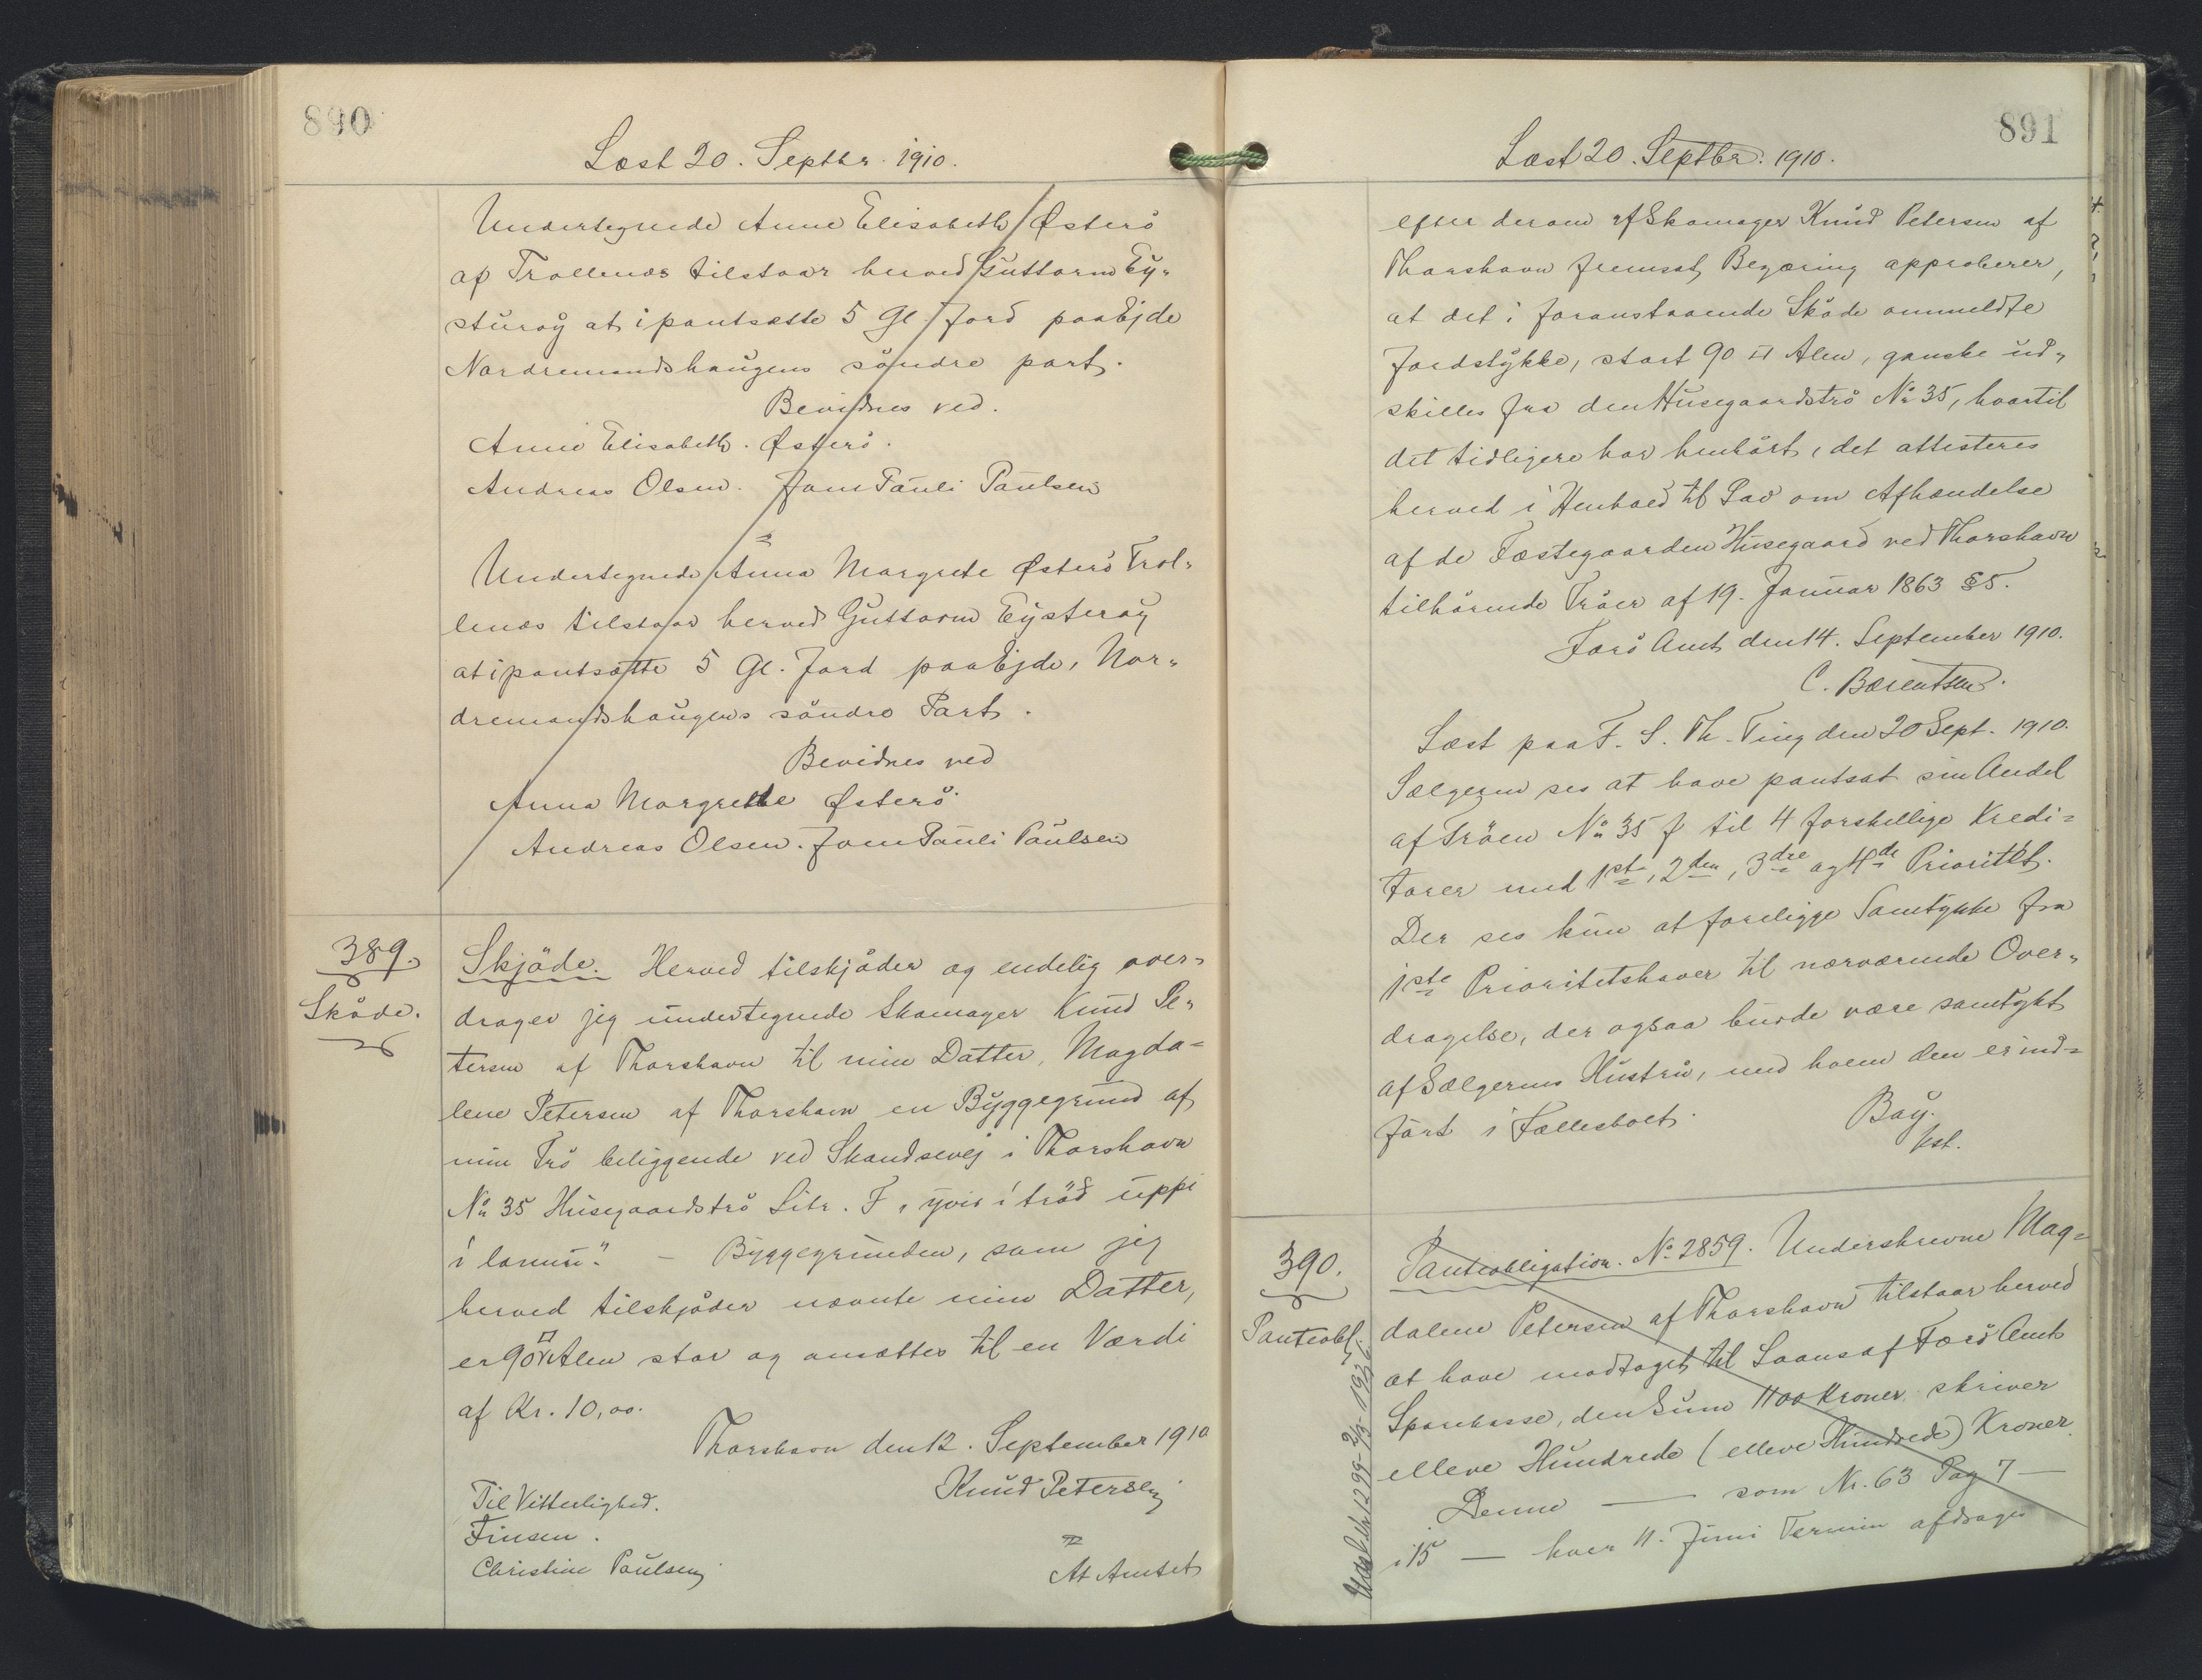 890
Læst 20. Septbr. 1910.
Undertegnede Anne Elisabeth Østerö
af Trollenæs tilstaar herved Guttorm Ey„
sturoy at ipantsætte 5 Gl. Jord paa Ejde
Nordremandshaugens söndre part.
Bevidnes ved.
Anne Elisabeth. Østerö.
Andreas Olsen. Joen Pauli Paulsen
Undertegnede Anna Margrete Østerö Trol„
lenæs tilstaar herved Guttorm Eysteroy
at ipantsætte 5 Gl. Jord paa Ejde, Nor„
dremandshaugens söndre Part.
Bevidnes ved
Anna Margrethe Østerö
Andreas Olsen. Joen Pauli Paulsen
389.
Sköde.
Skjöde. Herved tilskjöder og endelig over=
drager jeg undertegnede Skomager Knud Pe„
tersen af Thorshavn til min Datter, Magda=
lene Petersen af Thorshavn en Byggegrund af
min Trö beliggende ved Skandsevej i Thorshavn
No 35 Husegaardströ Litr. F „yvir í tröð uppi
í lonun." – Byggegrunden, som jeg
herved tilskjöder nævnte min Datter,
er 90 □ Alen stor og ansættes til en Værdi
af Kr. 10,00.
Thorshavn den 12. September 1910
Knud Petersen
Til Vitterlighed.
Finsen.
Christine Paulsen
At Amtet
891
Læst 20. Septbr. 1910.
efter derom af Skomager Knud Petersen af
Thorshavn fremsat Begæring approberer,
at det i foranstaaende Sköde ommeldte
Jordstykke, stort 90 □ Alen, ganske ud„
skilles fra den Husegaardströ No 35, hvortil
det tidligere har henhört, det attesteres
herved i Henhold til Lov om Afhændelse
af de Fæstegaarden Husegaard ved Thorshavn
tilhörende Tröer af 19. Januar 1863 § 5.
Færö Amt den 14. September 1910.
C. Bærentsen.
Læst paa F. S. Th. Ting den 20 Sept. 1910.
Sælgeren ses at have pantsat sin Andel
af Tröen No 35 f til 4 forskellige Kredi=
torer med 1ste, 2den, 3dre og 4de Prioritet.
Der ses kun at foreligge Samtykke fra
1ste Prioritetshaver til nærværende Over„
dragelse, der ogsaa burde være samtykt
af Sælgerens Hustru, med hvem den er ind=
fört i Fællesboet.
Bay.
kst.
390.
Panteobl.
Panteobligation. No 2859. Underskrevne Mag=
dalene Petersen af Thorshavn tilstaar herved
at have modtaget til Laans af Færö Amts
Sparekasse, den Sum 1100 Kroner skriver
elleve Hundrede (elleve Hundrede) Kroner.
Denne — som Nr. 63 Pag 7 —
i 15 — hver 11. Juni Termin afdrages